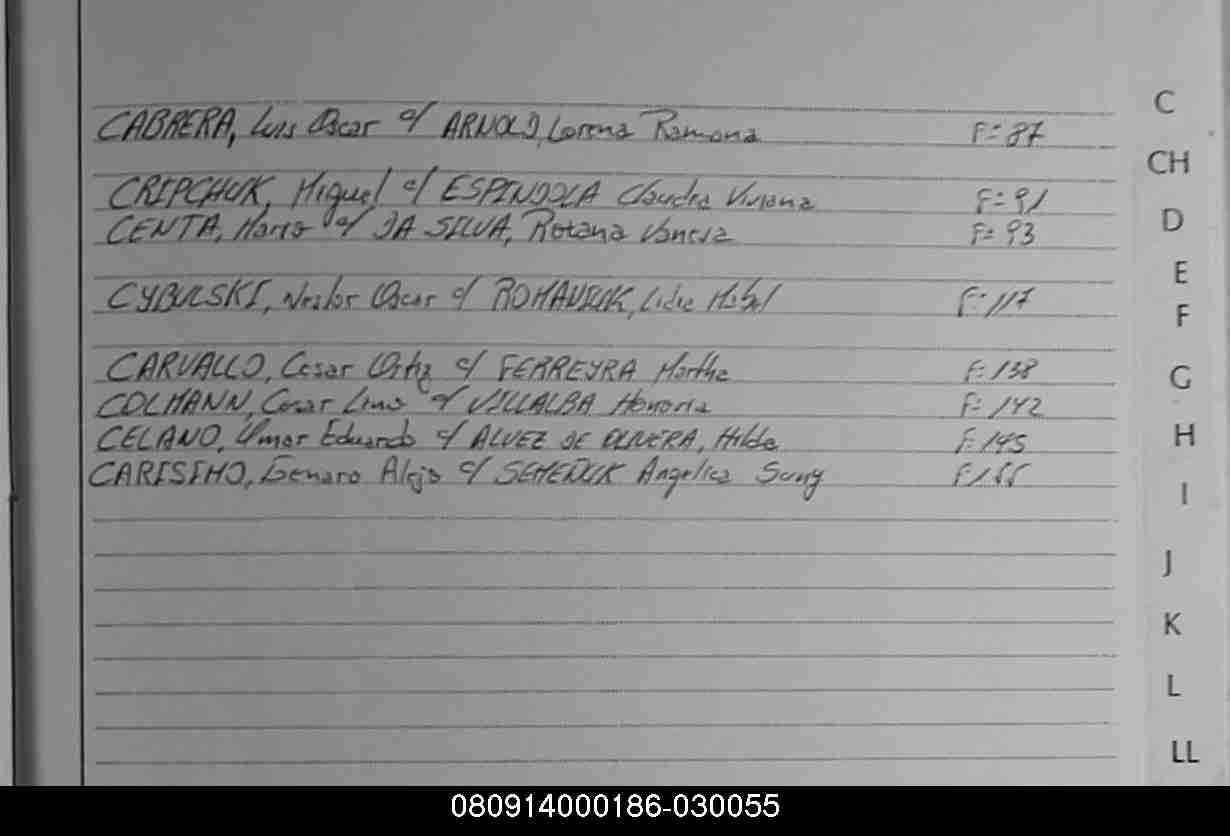 CABRERA, Luis Oscar c/ ARNOLD, Lorena Ramona F= 87
CRIPCHUK, Miguel c/ ESPINDOLA Claudia Viviana F= 91
CENTA, Mario c/ DA SILVA, Vanesa F= 93
CYBULSKI, Nestor Oscar c/ ROMANIUK, Lidia Mabel F= 117
CARVALLO, Cesar Ortiz c/ FERREYRA Martha F= 138
COLMANN, Cesar Lino c/ VILLALBA Honoria F= 142
CELANO, Omar Eduardo c/ ALVEZ DE OLIVERA, Hilda F= 145
CARISIMO, Genaro Alejo c/ SEMEÑUK Angelica F 155
C
CH
D
E
F
G
H
I
J
K
L
LL
080914000186-030055